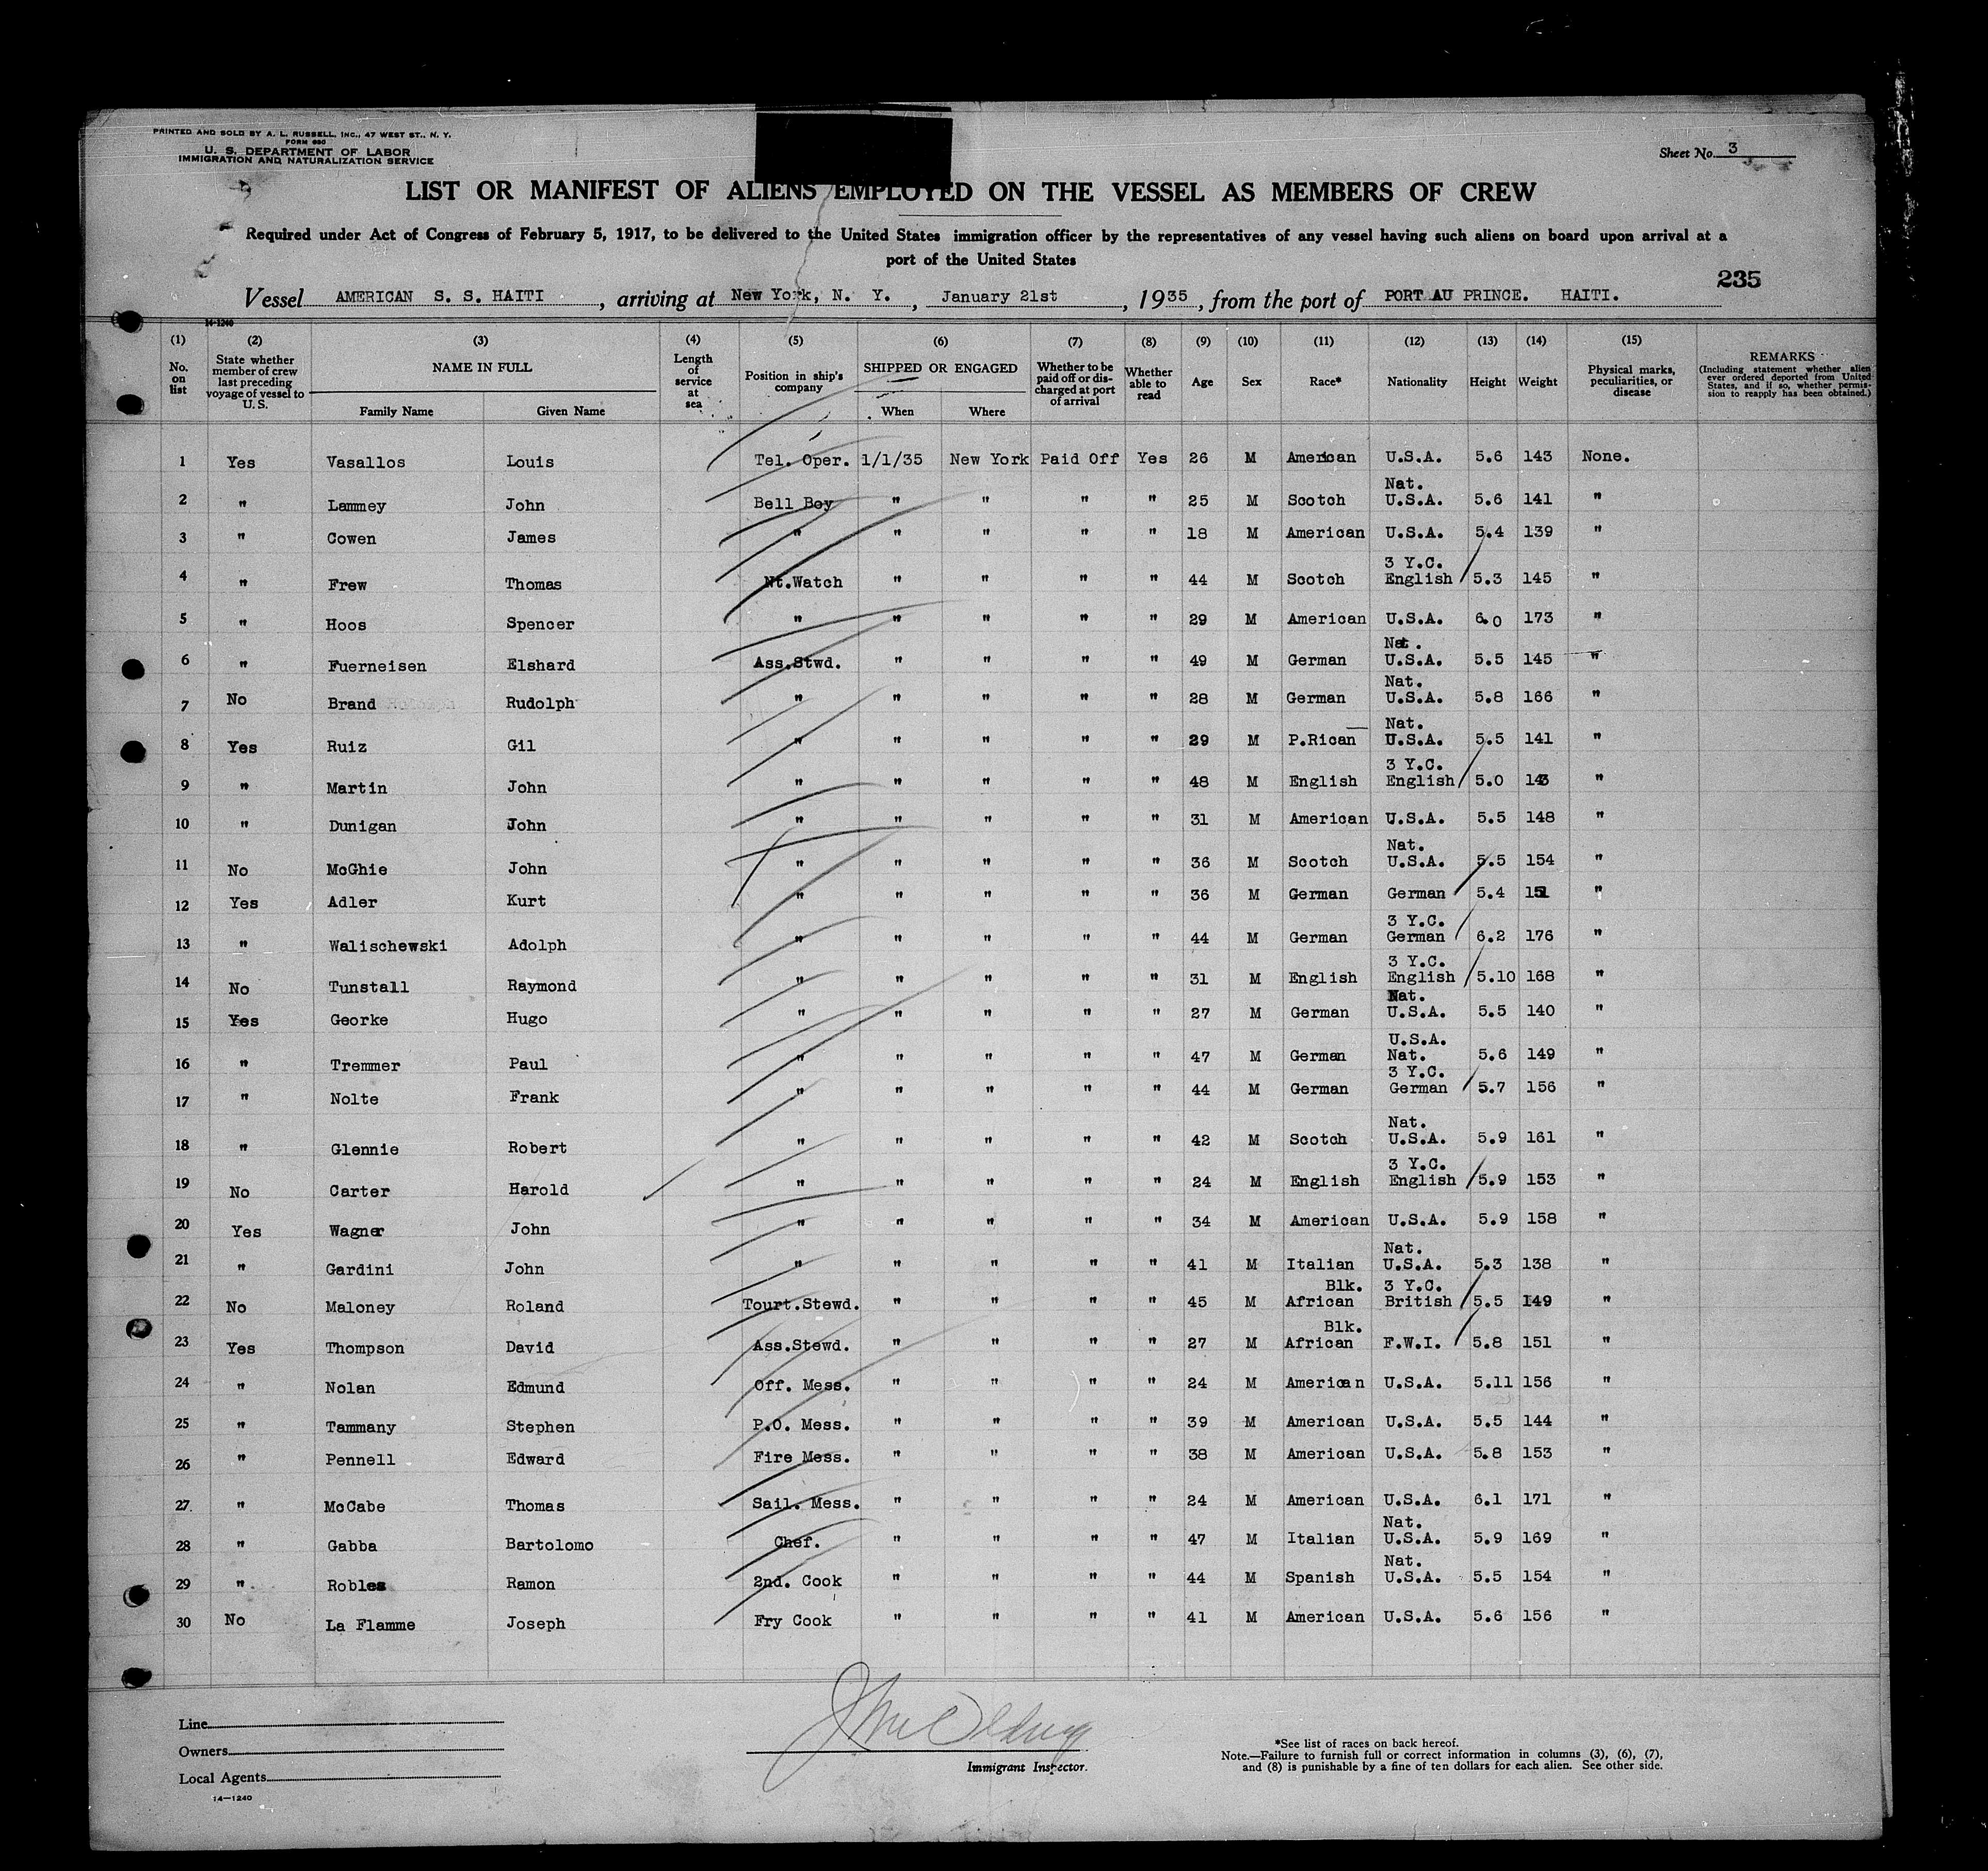 PRINTED AND SOLD BY A. L. RUSSELL, INC., 47 WEST ST., N. Y.
FORM 680
U. S. DEPARTMENT OF LABOR
IMMIGRATION AND NATURALIZATION SERVICE
Sheet No. 3
LIST OR MANIFEST OF ALIENS EMPLOYED ON THE VESSEL AS MEMBERS OF CREW
Required under Act of Congress of February 5, 1917, to be delivered to the United States immigration officer by the representatives of any vessel having such aliens on board upon arrival at a
port of the United States
235
Vessel AMERICAN S. S. HAITI, arriving at New York, N. Y., January 21st, 1935, from the port of PORT AU PRINCE. HAITI.
14-1240
(1) (2) (3) (4) (5) (6) (7) (8) (9) (10) (11) (12) (13) (14) (15)
No. on list State whether member of crew last preceding voyage of vessel to U. S. NAME IN FULL Family Name Given Name Length of service at sea Position in ship's company SHIPPED OR ENGAGED When Where Whether to be paid off or discharged at port of arrival Whether able to read Age Sex Race* Nationality Height Weight Physical marks, peculiarities, or disease REMARKS (Including statement whether alien ever ordered deported from United States, and if so, whether permission to reapply has been obtained.)
1 Yes Vasallos Louis Tel. Oper. 1/1/35 New York Paid Off Yes 26 M American U.S.A. 5.6 143 None.
2 " Lammey John Bell Boy " " " " 25 M Scotch Nat. U.S.A. 5.6 141 "
3 " Cowen James " " " " " 18 M American U.S.A. 5.4 139 "
4 " Frew Thomas Nt.Watch " " " " 44 M Scotch 3 Y.C. English 5.3 145 "
5 " Hoos Spencer " " " " " 29 M American U.S.A. 6.0 173 "
6 " Fuerneisen Elshard Ass.Stwd. " " " " 49 M German Nat. U.S.A. 5.5 145 "
7 No Brand Rudolph " " " " " 28 M German Nat. U.S.A. 5.8 166 "
8 Yes Ruiz Gil " " " " " 29 M P.Rican Nat. U.S.A. 5.5 141 "
9 " Martin John " " " " " 48 M English 3 Y.C. English 5.0 143 "
10 " Dunigan John " " " " " 31 M American U.S.A. 5.5 148 "
11 No McGhie John " " " " " 36 M Scotch Nat. U.S.A. 5.5 154 "
12 Yes Adler Kurt " " " " " 36 M German German 5.4 151 "
13 " Walischewski Adolph " " " " " 44 M German 3 Y.C. German 6.2 176 "
14 No Tunstall Raymond " " " " " 31 M English 3 Y.C. English 5.10 168 "
15 Yes Georke Hugo " " " " " 27 M German Nat. U.S.A. 5.5 140 "
16 " Tremmer Paul " " " " " 47 M German U.S.A. Nat. 5.6 149 "
17 " Nolte Frank " " " " " 44 M German 3 Y.C. German 5.7 156 "
18 " Glennie Robert " " " " " 42 M Scotch Nat. U.S.A. 5.9 161 "
19 No Carter Harold " " " " " 24 M English 3 Y.C. English 5.9 153 "
20 Yes Wagner John " " " " " 34 M American U.S.A. 5.9 158 "
21 " Gardini John " " " " " 41 M Italian Nat. U.S.A. 5.3 138 "
22 No Maloney Roland Tourt.Stewd. " " " " 45 M Blk. African 3 Y.C. British 5.5 149 "
23 Yes Thompson David Ass.Stewd. " " " " 27 M Blk. African F.W.I. 5.8 151 "
24 " Nolan Edmund Off. Mess. " " " " 24 M American U.S.A. 5.11 156 "
25 " Tammany Stephen P.O. Mess. " " " " 39 M American U.S.A. 5.5 144 "
26 " Pennell Edward Fire Mess. " " " " 38 M American U.S.A. 5.8 153 "
27 " McCabe Thomas Sail. Mess. " " " " 24 M American U.S.A. 6.1 171 "
28 " Gabba Bartolomo Chef. " " " " 47 M Italian Nat. U.S.A. 5.9 169 "
29 " Robles Ramon 2nd. Cook " " " " 44 M Spanish Nat. U.S.A. 5.5 154 "
30 No La Flamme Joseph Fry Cook " " " " 41 M American U.S.A. 5.6 156 "
Line
Owners
Local Agents
14-1240
Immigrant Inspector.
*See list of races on back hereof.
Note.—Failure to furnish full or correct information in columns (3), (6), (7),
and (8) is punishable by a fine of ten dollars for each alien. See other side.